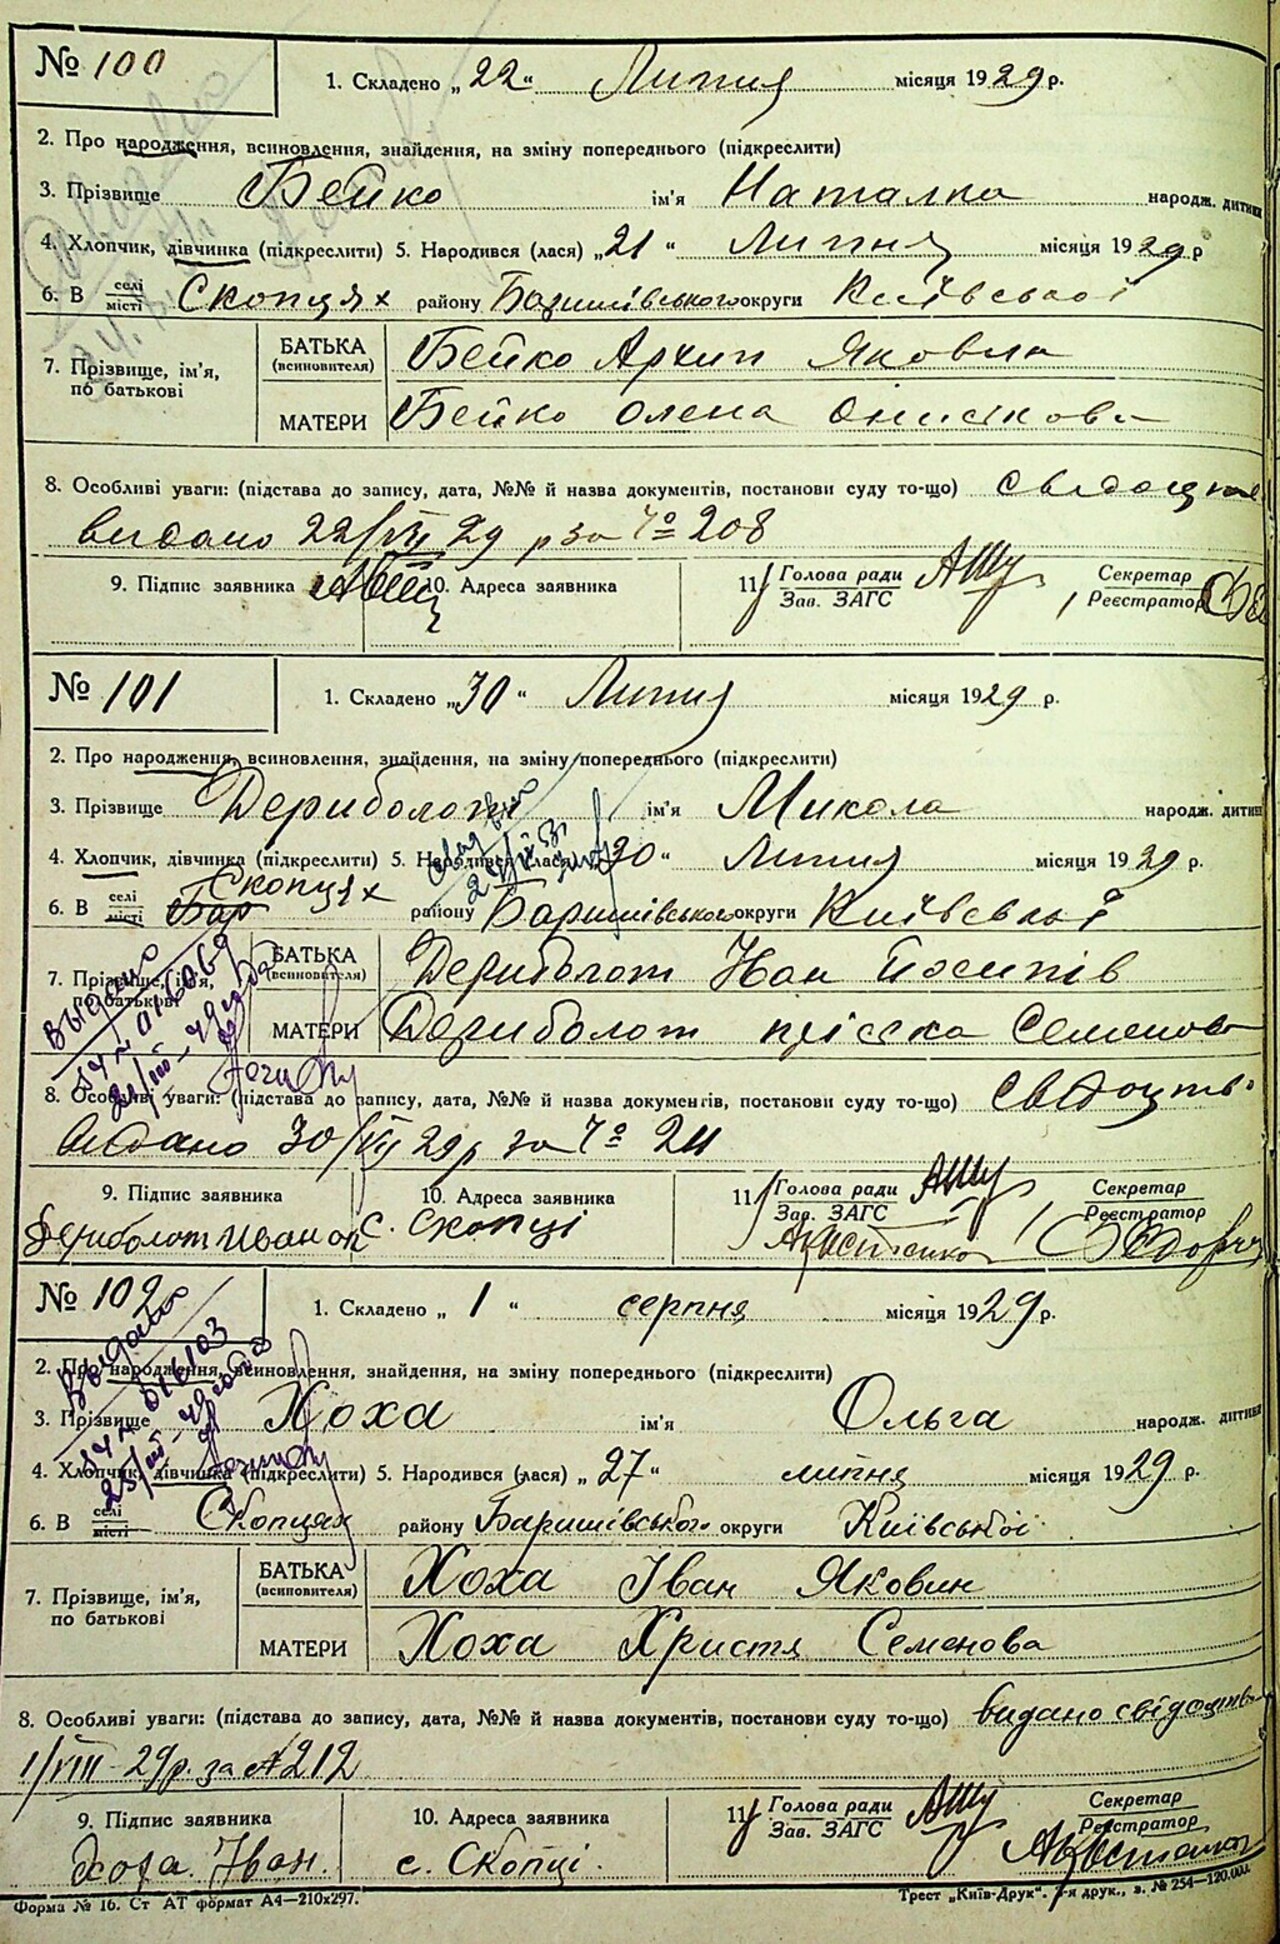 № 100
1. Складено „22“ Липня місяця 1929 р.
2. Про народження, всиновлення, знайдення, на зміну попереднього (підкреслити)
3. Прізвище Бейко ім'я Наталка народж. дитини
4. Хлопчик, дівчинка (підкреслити) 5. Народився (лася) „21“ Липня місяця 1929 р
6. В селі місті Скопцях району Баришівського округи Київської
7. Прізвище, ім'я, по батькові
БАТЬКА (всиновителя) Бейко Архип Яковл
МАТЕРИ Бейко Олена Онисікова
8. Особливі уваги: (підстава до запису, дата, №№ й назва документів, постанови суду то-що) Свідоцтво
видано 22/VII 29 р за № 208
9. Підпис заявника
10. Адреса заявника
11. Голова ради Зав. ЗАГС
Секретар Реєстратор
№ 101
1. Складено „30“ Липня місяця 1929 р.
2. Про народження, всиновлення, знайдення, на зміну попереднього (підкреслити)
3. Прізвище Дериболот ім'я Микола народж. дитини
4. Хлопчик, дівчинка (підкреслити) 5. Народився (лася) „30“ Липня місяця 1929 р.
Скопцях
6. В селі місті Бар району Баришівського округи Київської
7. Прізвище, ім'я, по батькові
БАТЬКА (всиновителя) Дериболот Іван Йосипів
МАТЕРИ Дериболот Пріська Семенова
Выдано
016069
8. Особливі уваги: (підстава до запису, дата, №№ й назва документів, постанови суду то-що) Свідоцтво
видано 30/VII 29 р за № 211
9. Підпис заявника
10. Адреса заявника
11. Голова ради Зав. ЗАГС
Секретар Реєстратор
Дериболот Иван
с. Скопці
№ 102
1. Складено „1“ серпня місяця 1929 р.
Выдано
016103
2. Про народження, всиновлення, знайдення, на зміну попереднього (підкреслити)
3. Прізвище Хоха ім'я Ольга народж. дитини
4. Хлопчик, дівчинка (підкреслити) 5. Народився (лася) „27“ липня місяця 1929 р.
6. В селі місті Скопцях району Баришівського округи Київської
7. Прізвище, ім'я, по батькові
БАТЬКА (всиновителя) Хоха Іван Яковин
МАТЕРИ Хоха Христя Семенова
8. Особливі уваги: (підстава до запису, дата, №№ й назва документів, постанови суду то-що) видано свідоцтво
1/VIII-29р. за № 212
9. Підпис заявника
10. Адреса заявника
11. Голова ради Зав. ЗАГС
Секретар Реєстратор
Хоха Іван.
с. Скопці.
Форма № 16. Ст АТ формат А4—210х297.
Трест „Київ-Друк“. друк., з. № 254—120.000.